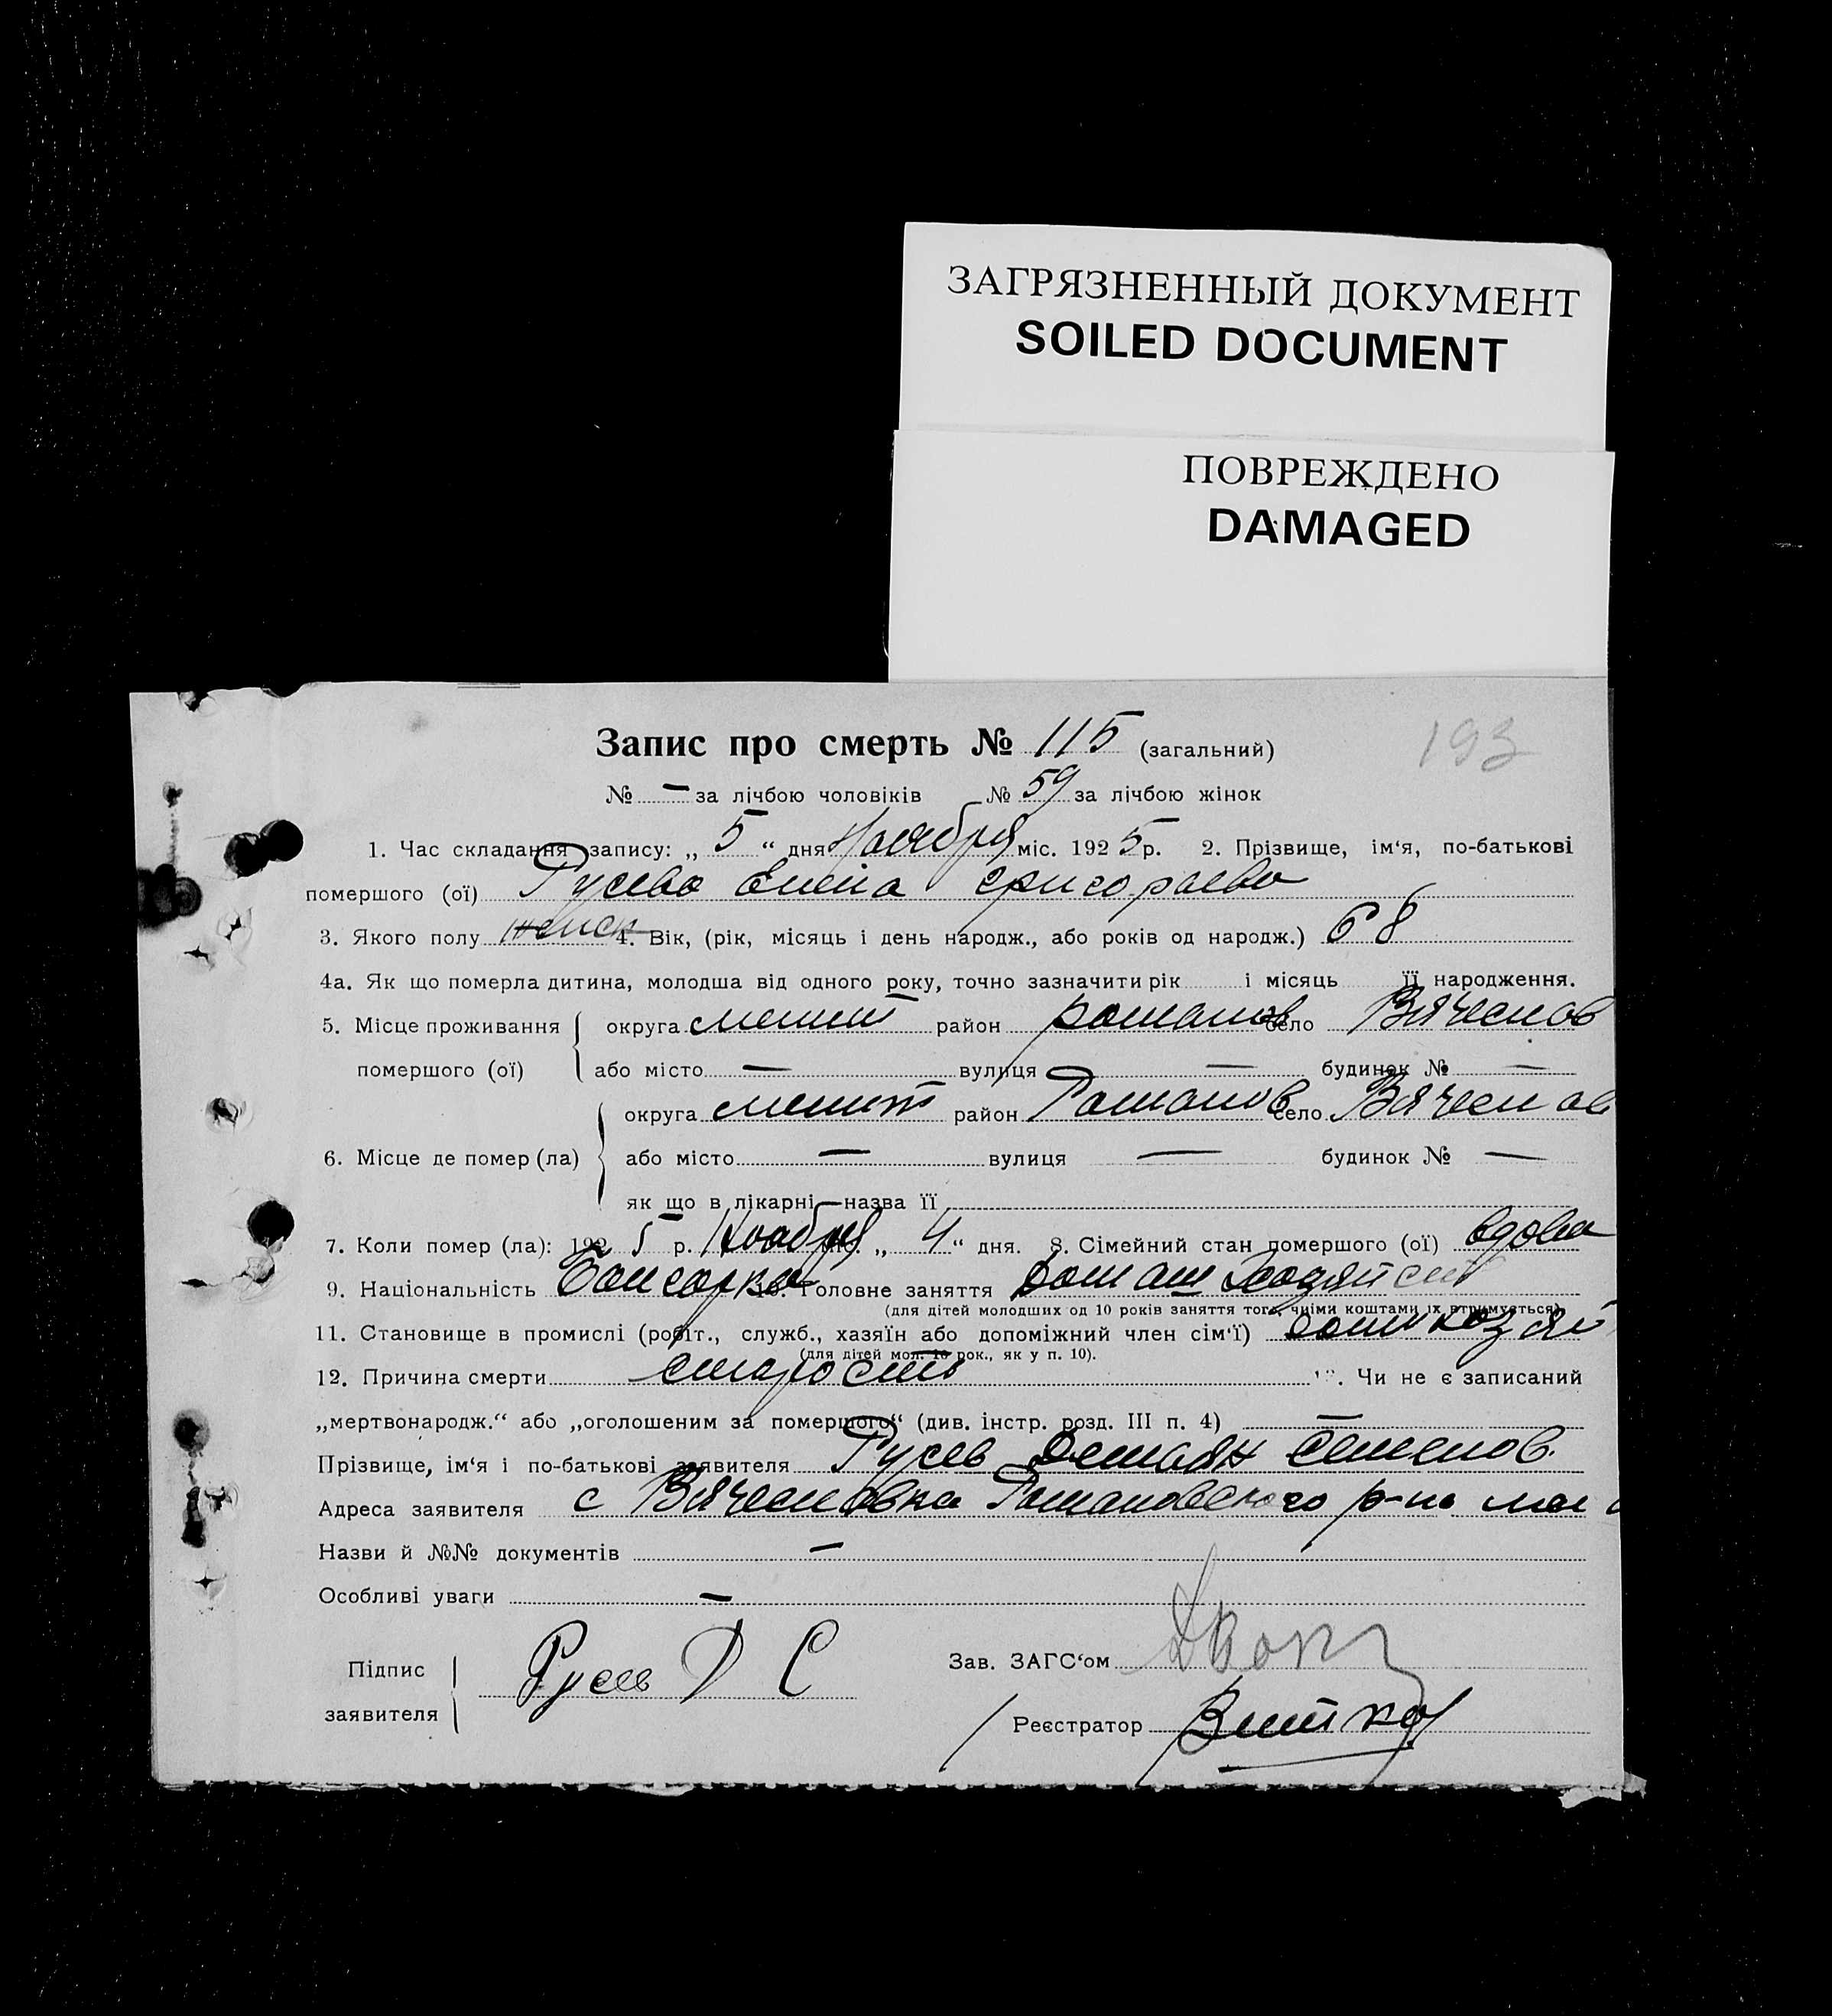 ЗАГРЯЗНЕННЫЙ ДОКУМЕНТ
SOILED DOCUMENT
ПОВРЕЖДЕНО
DAMAGED
193
Запис про смерть № 115 (загальний)
№ — за лічбою чоловіків № 59 за лічбою жінок
1. Час складання запису: „ 5 “ дня Ноября міс. 1925 р. 2. Прізвище, ім‘я, по-батькові
помершого (ої) Русева Елена Григораева
3. Якого полу женск 4. Вік, (рік, місяць і день народж., або років од народж.) 68
4а. Як що померла дитина, молодша від одного року, точно зазначити рік і місяць її народження.
5. Місце проживання округа мелит район романов село Вячеслов
помершого (ої) або місто — вулиця — будинок № —
округа мелит район Романов село Вячеслов
6. Місце де помер (ла) або місто — вулиця — будинок № —
як що в лікарні—назва її
7. Коли помер (ла): 192 5 р. Ноабря міс. „ 4 “ дня. 8. Сімейний стан помершого (ої) вдова
9. Національність Болгарка 10. Головне заняття домаш хозяйст
(для дітей молодших од 10 років заняття того, чиїми коштами їх втримується)
11. Становище в промислі (робіт., служб., хазяїн або допоміжний член сім‘ї) дом хозяй
(для дітей мол. 10 рок., як у п. 10).
12. Причина смерти старость 13. Чи не є записаний
„мертвонародж.“ або „оголошеним за помершого“ (див. інстр. розд. III п. 4) —
Прізвище, ім‘я і по-батькові заявителя Русев Демьян Семенов.
Адреса заявителя с Вячесловка Романовского р-на мел
Назви й №№ документів —
Особливі уваги —
Підпис заявителя Русев Д С Зав. ЗАГС‘ом
Реєстратор